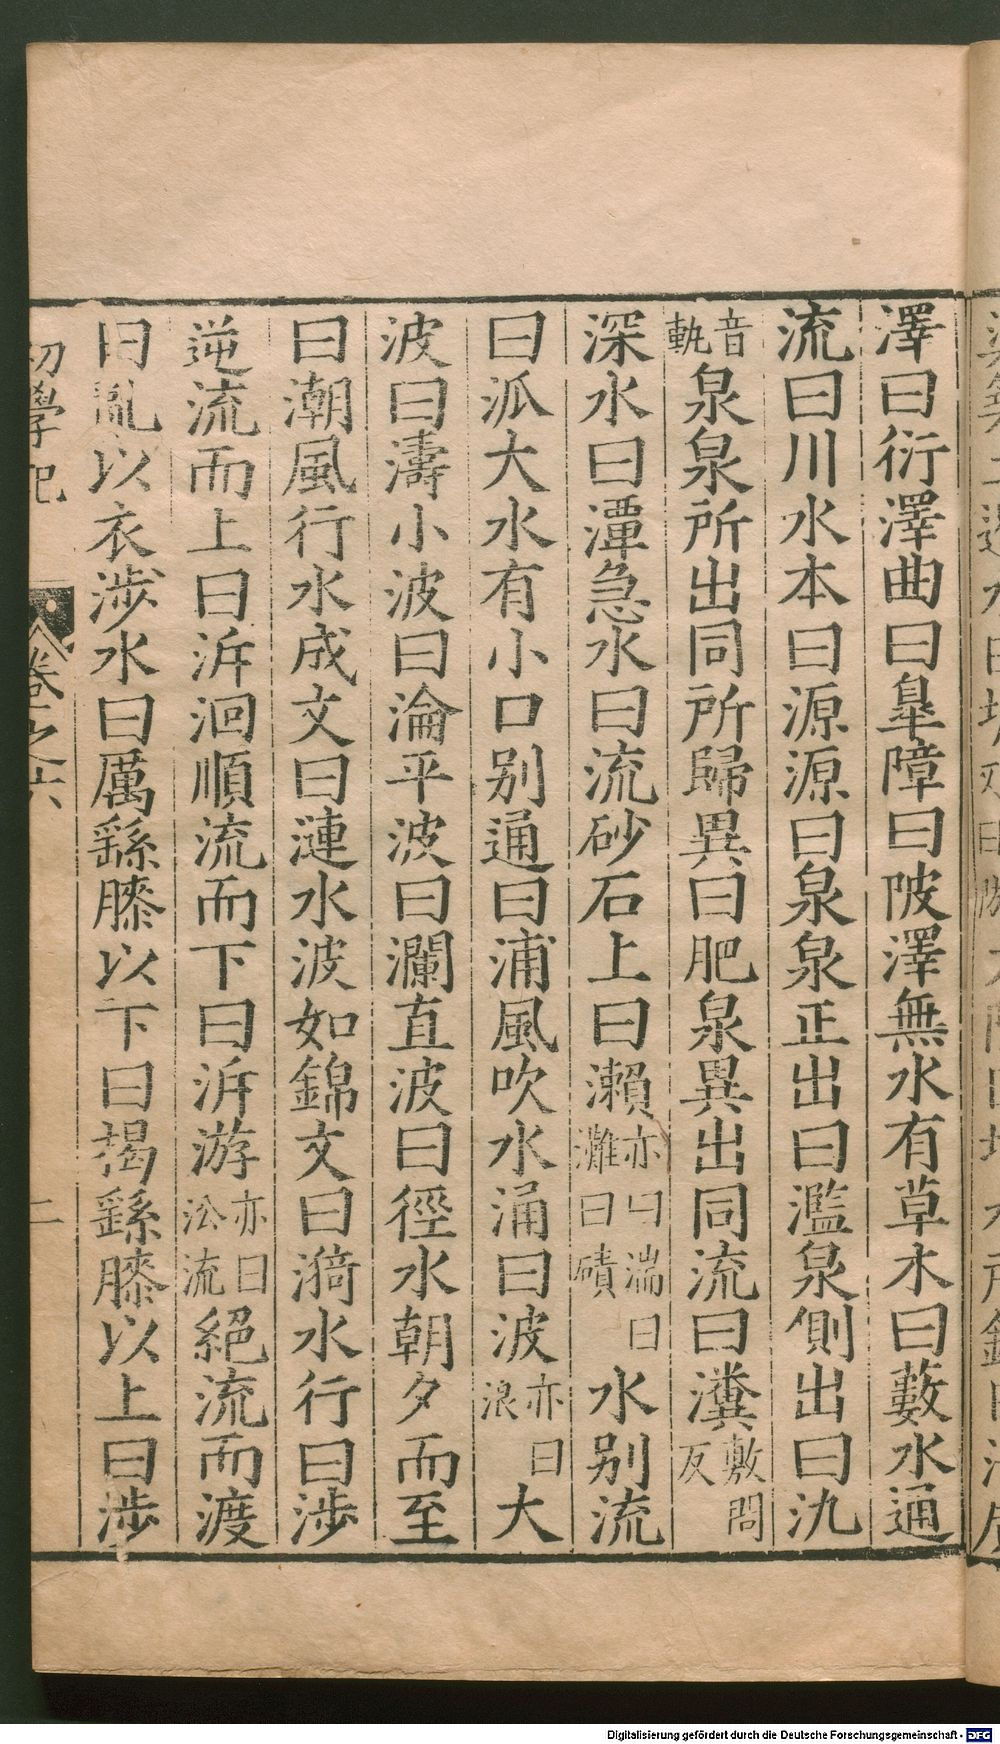 澤曰衍澤曲曰臯障曰陂澤無水有草木曰藪水通
流曰川水本曰源源曰泉泉正出曰濫泉側出曰氿
音軌泉泉所出同所歸異曰肥泉異出同流曰瀵敷問反
深水曰潭急水曰流砂石上曰瀨亦曰湍曰灘曰磧水別流
曰派大水有小口別通曰浦風吹水涌曰波亦曰浪大
波曰濤小波曰淪平波曰瀾直波曰徑水朝夕而至
曰潮風行水成文曰漣水波如錦文曰漪水行曰涉
逆流而上曰泝洄順流而下曰泝游亦曰沿流絕流而渡
曰亂以衣涉水曰厲繇膝以下曰揭繇膝以上曰涉
初學記 卷之六 二
Digitalisierung gefördert durch die Deutsche Forschungsgemeinschaft - DFG